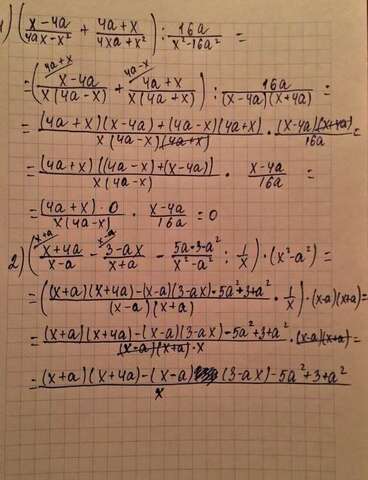 1) ( (x-4a)/(4ax-x²) + (4a+x)/(4xa+x²) ) : 16a/(x²-16a²) =
= ( (x-4a)^(4a+x)/(x(4a-x)) + (4a+x)^(4a-x)/(x(4a+x)) ) : 16a/((x-4a)(x+4a)) =
= ((4a+x)(x-4a)+(4a-x)(4a+x))/(x(4a-x)(4a+x)) · (x-4a)(x+4a)/16a =
= (4a+x)((4a-x)+(x-4a))/(x(4a-x)) · (x-4a)/16a =
= (4a+x)·0/(x(4a-x)) · (x-4a)/16a = 0
2) ( (x+4a)^(x+a)/(x-a) - (3-ax)^(x-a)/(x+a) - (5a·3-a²)/(x²-a²) : 1/x ) · (x²-a²) =
= ( ((x+a)(x+4a)-(x-a)(3-ax)-5a²+3+a²)/((x-a)(x+a)) · 1/x ) · (x-a)(x+a) =
= ((x+a)(x+4a)-(x-a)(3-ax)-5a²+3+a²)/((x-a)(x+a)·x) · (x-a)(x+a) =
= ((x+a)(x+4a)-(x-a)(3-ax)-5a²+3+a²)/x